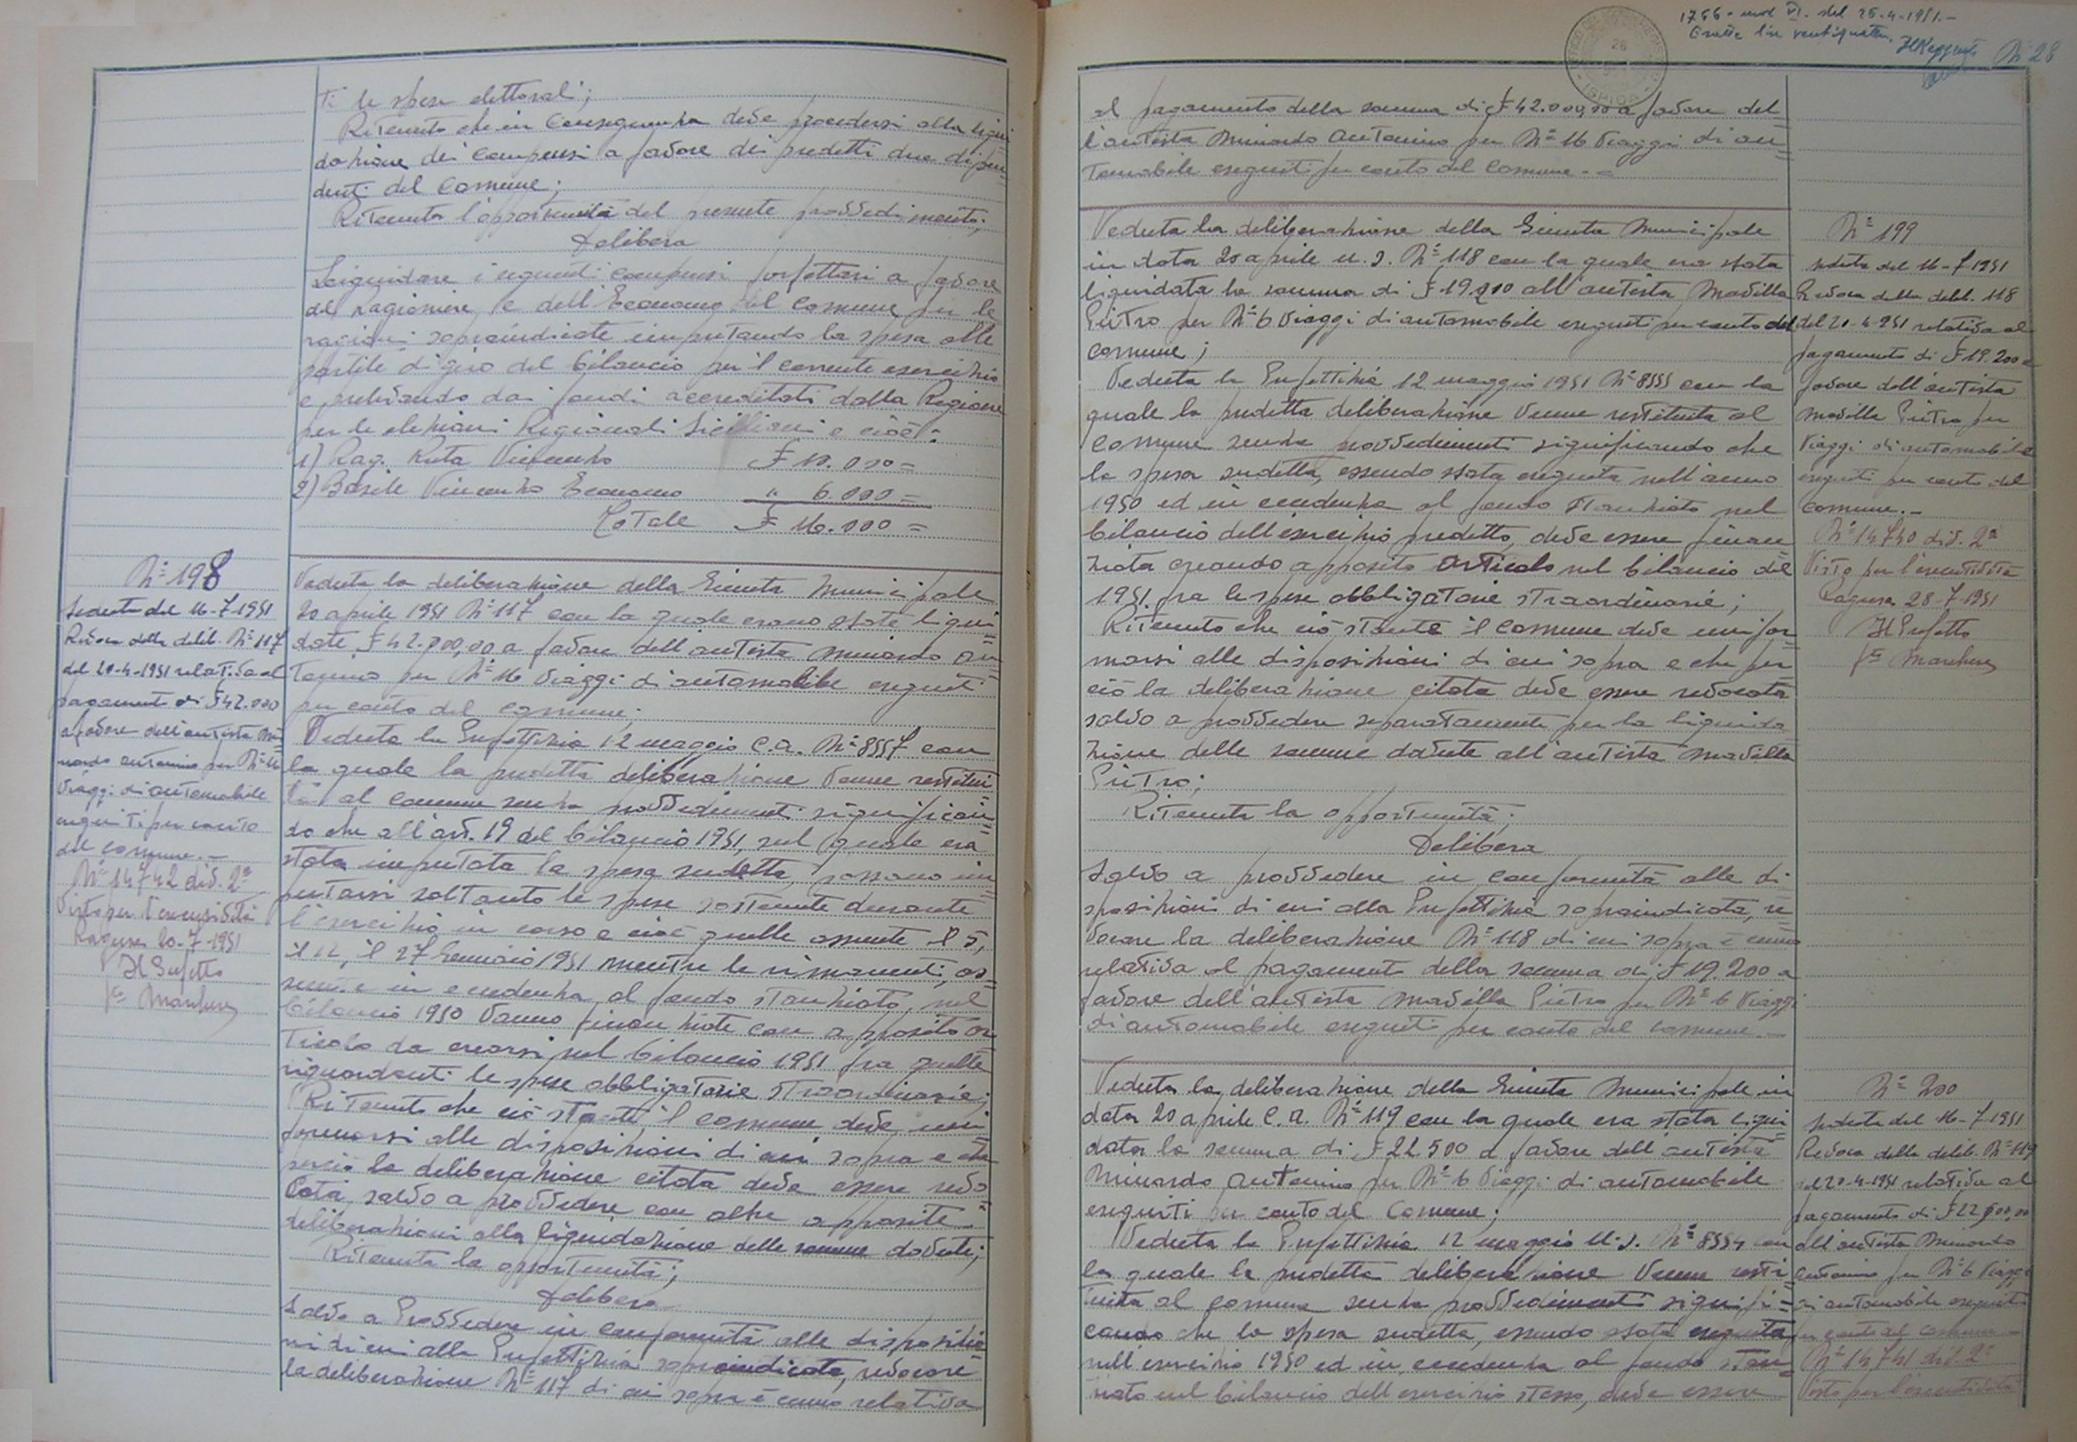 ti le spese elettorali;
Ritenuto che in conseguenza deve procedersi alla liqui
dazione dei compensi a favore dei predetti due dipen=
denti del Comune;
Ritenuta l'opportunità del presente provvedimento;
Delibera
Liquidare i seguenti compensi forfettari a favore
del Ragioniere e dell'Economo del Comune per le
ragioni sopraindicate imputando la spesa alle
partite di giro del bilancio per il corrente esercizio
e prelevando dai fondi accreditati dalla Regione
per le elezioni Regionali Siciliani e cioè:
1) Rag. Ruta Vincenzo £ 10.000=
2) Basile Vincenzo Economo " 6.000=
Totale £ 16.000=
N= 198
Seduta del 16-7-1951
Revoca della delib. N= 117
del 20-4-1951 relativa al
pagamento di £ 42.000
a favore dell'autista Mi=
nardo Antonino per N= 16
viaggi di automobile
eseguiti per conto
del comune.-
N= 14742 div. 2ª
Visto per l'esecutività
Ragusa 20-7-1951
Il Prefetto
Veduta la deliberazione della Giunta Municipale
20 aprile 1951 N= 117 con la quale erano state liqui=
date £ 42.000,00 a favore dell'autista Minardo An=
tonino per N= 16 viaggi di automobile eseguiti
per conto del comune;
Veduta la Prefettizia 12 maggio c.a. N= 8557 con
la quale la predetta deliberazione venne restitui
ta al comune senza provvedimenti significan=
do che all'art. 19 del bilancio 1951, sul quale era
stata imputata la spesa sudetta, possono im=
putarsi soltanto le spese sostenute durante
l'esercizio in corso e cioè quelle assunte il 5,
il 12, il 27 Gennaio 1951 mentre le rimanenti, as=
sunte in eccedenza al fondo stanziato nel
bilancio 1950 vanno finanziate con apposito ar
ticolo da crearsi nel bilancio 1951 fra quelle
riguardanti le spese obbligatorie straordinarie;
Ritenuto che ciò stante il comune deve uni
formarsi alle disposizioni di cui sopra e che
perciò la deliberazione citata deve essere revo=
cata, salvo a provvedere con altre apposite
deliberazioni alla liquidazione delle somme dovute;
Ritenuta la opportunità;
Delibera
Salvo a Provvedere in conformità alle disposizio
ni di cui alla Prefettizia sopraindicata, revocare
la deliberazione N= 117 di cui sopra è cenno relativa
1766 - mod VI. del 25-4-1951.-
N= 28
al pagamento della somma di £ 42.000,00 a favore del
l'autista Minardo Antonino per N= 16 viaggi di au=
tomobile eseguiti per conto del comune.-=
Veduta la deliberazione della Giunta Municipale
in data 20 aprile u.s. N= 118 con la quale era stata
liquidata la somma di £ 19.200 all'autista Modilla
Pietro per N= 6 viaggi di automobile eseguiti per conto del
comune;
Veduta la Prefettizia 12 maggio 1951 N= 8555 con la
quale la predetta deliberazione venne restituita al
comune senza provvedimenti significando che
la spesa sudetta, essendo stata eseguita nell'anno
1950 ed in eccedenza al fondo stanziato nel
bilancio dell'esercizio predetto, deve essere finan
ziata creando apposito articolo nel bilancio del
1951 fra le spese obbligatorie straordinarie;
Ritenuto che ciò stante il comune deve unifor
marsi alle disposizioni di cui sopra e che per
ciò la deliberazione citata deve essere revocata
salvo a provvedere separatamente per la liquida
zione delle somme dovute all'autista Modilla
Pietro;
Ritenuta la opportunità;
Delibera
Salvo a provvedere in conformità alle di
sposizioni di cui alla Prefettizia sopraindicata, re=
vocare la deliberazione N= 118 di cui sopra è cenno
relativa al pagamento della somma di £ 19.200 a
favore dell'autista Modilla Pietro per N= 6 viaggi
di automobile eseguiti per conto del comune.-
N= 199
seduta del 16-7-1951
Revoca della delib. 118
del 20-4-951 relativa al
pagamento di £ 19.200 a
favore dell'autista
Modilla Pietro per
viaggi di automobile
eseguiti per conto del
comune.-
N= 14740 div. 2ª
Visto per l'esecutività
Ragusa 28-7-1951
Il Prefetto
Veduta la deliberazione della Giunta Municipale in
data 20 aprile c.a. N= 119 con la quale era stata liqui=
data la somma di £ 22.500 a favore dell'autista
Minardo Antonino per N= 6 viaggi di automobile
eseguiti per conto del Comune;
Veduta la Prefettizia 12 maggio u.s. N= 8554 con
la quale la predetta deliberazione venne resti=
tuita al comune senza provvedimenti signifi=
cando che la spesa sudetta, essendo stata eseguita
nell'esercizio 1950 ed in eccedenza al fondo stan=
ziato nel bilancio dell'esercizio stesso, deve essere
N= 200
seduta del 16-7-1951
Revoca della delib. N= 119
del 20-4-1951 relativa al
pagamento di £ 22.500,00
all'autista Minardo
Antonino per N= 6 viaggi
di automobile eseguiti
per conto del comune.-
N= 14741 div. 2ª
Visto per l'esecutività